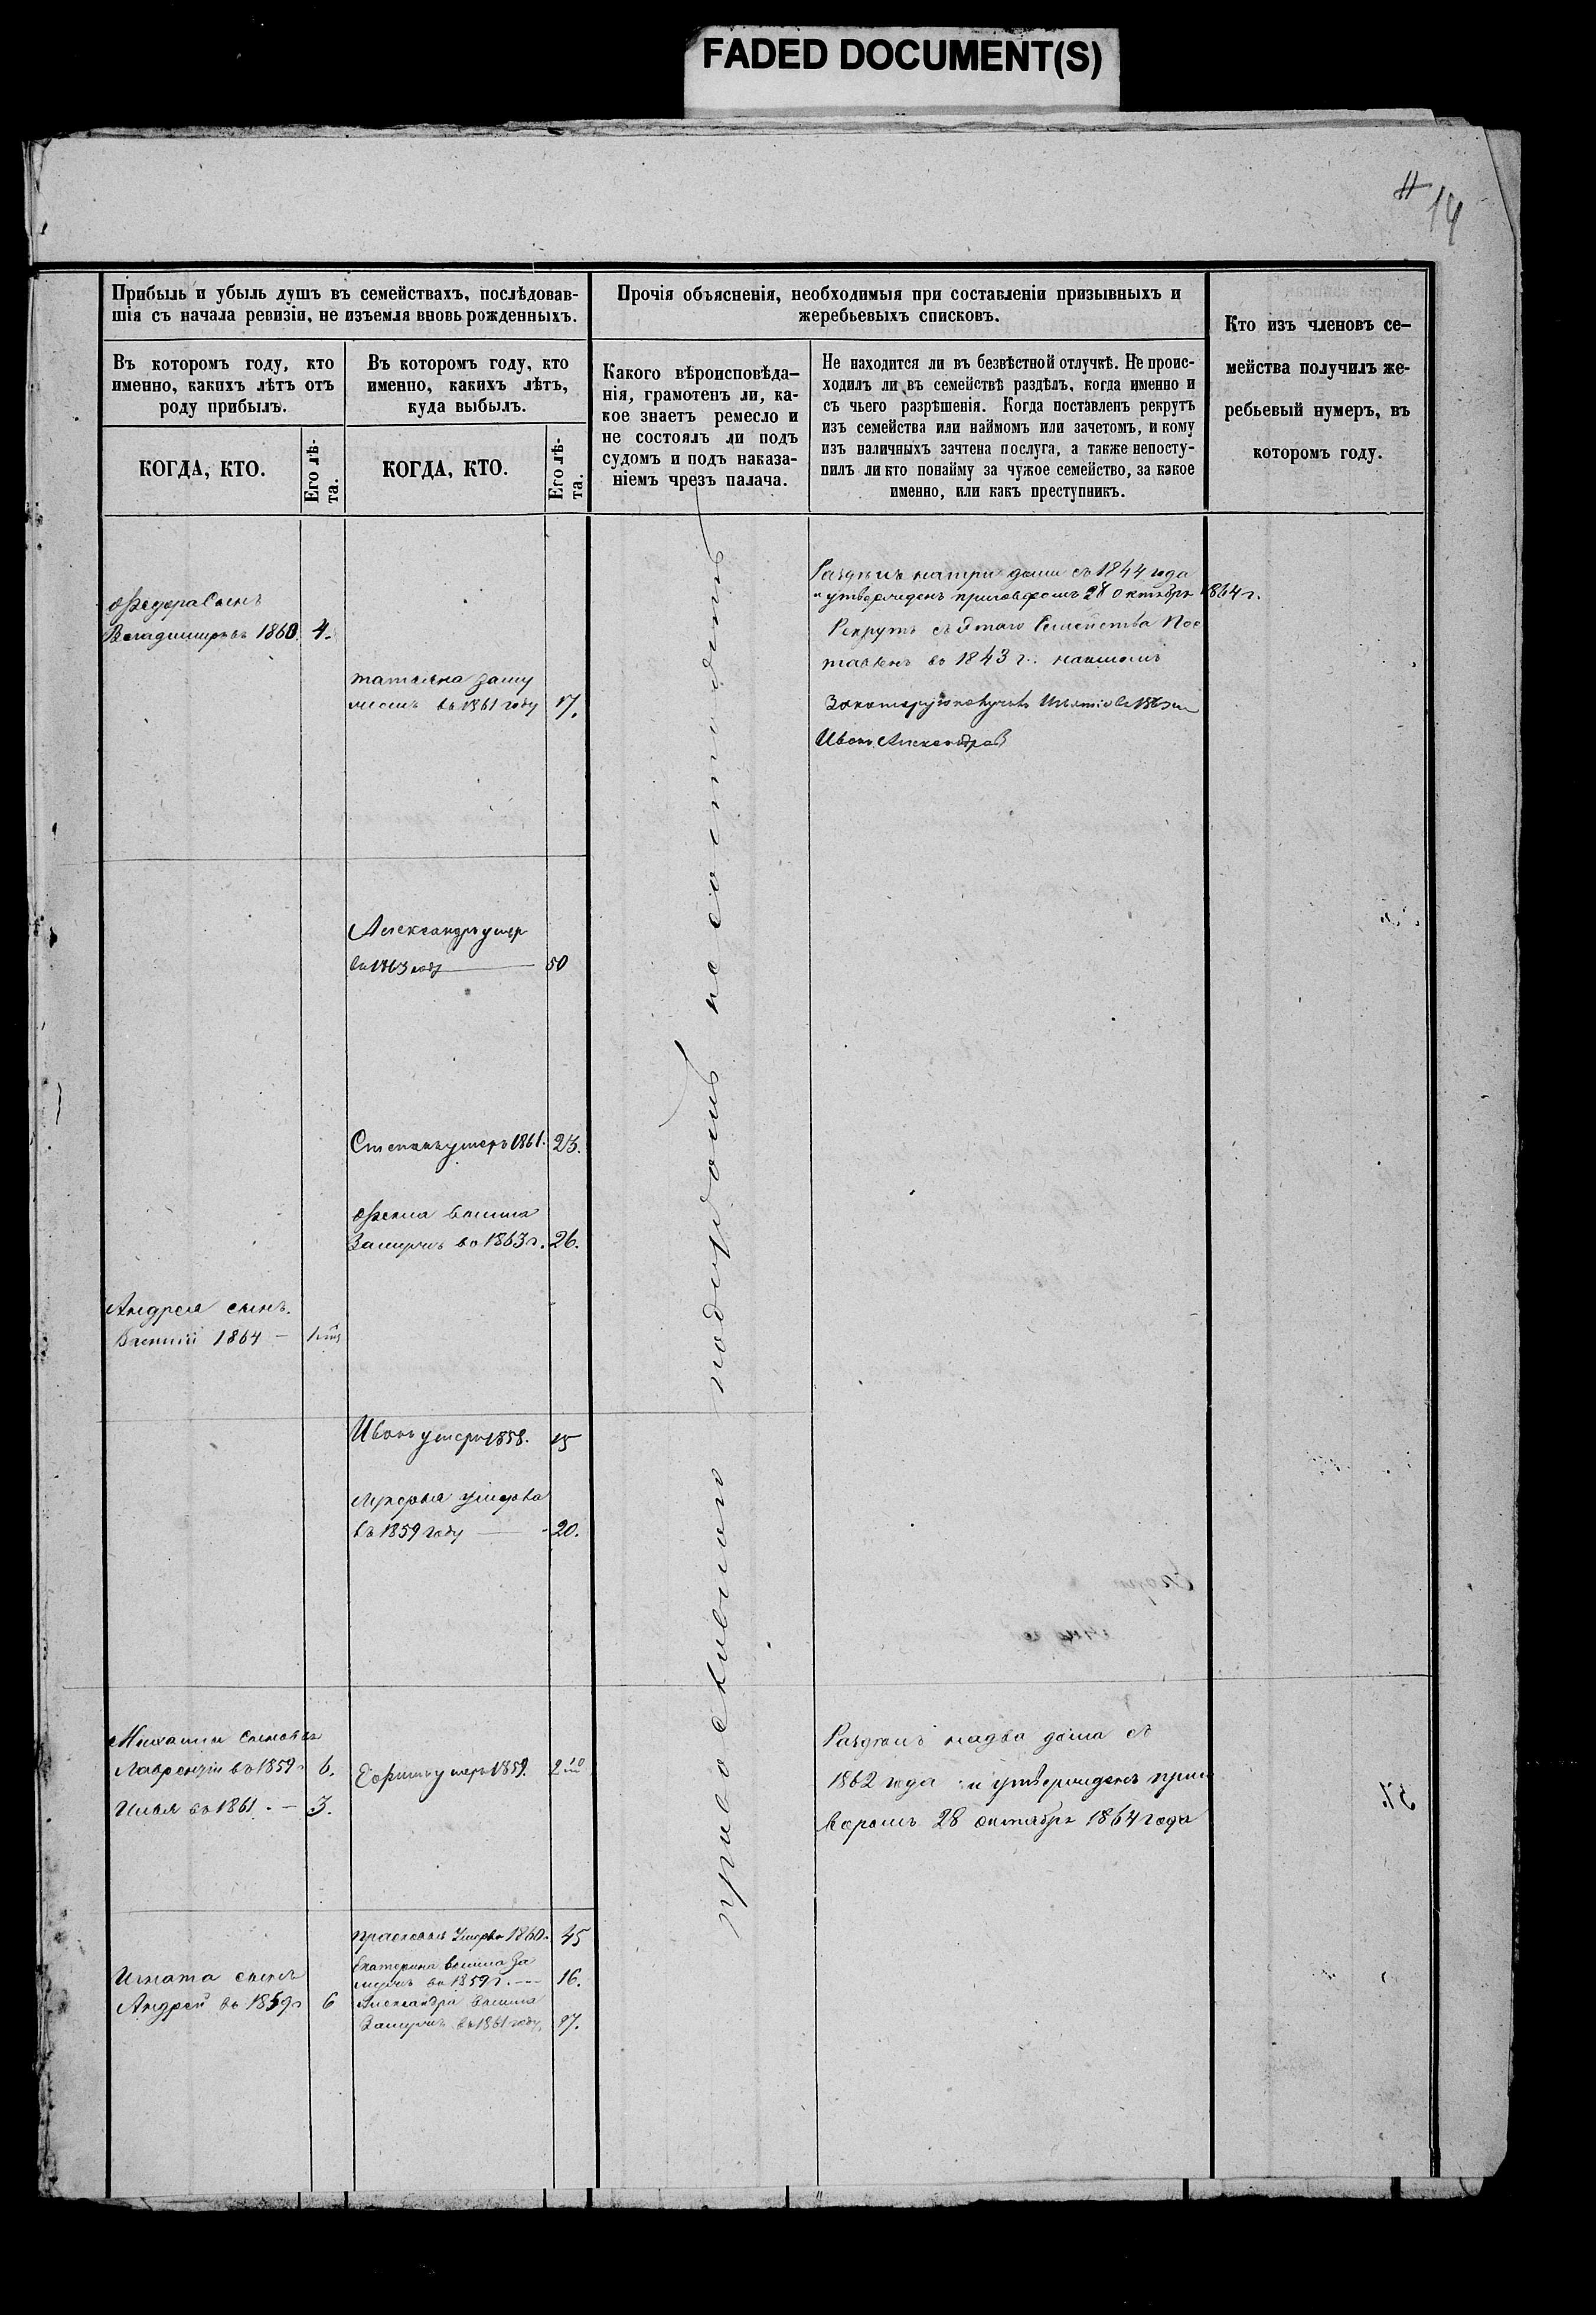 FADED DOCUMENT(S)
14
Прибыль и убыль душъ въ семействахъ, послѣдовав-
шія съ начала ревизіи, не изъемля вновь рожденныхъ.
Въ которомъ году, кто
именно, какихъ лѣтъ отъ
роду прибылъ.
Въ которомъ году, кто
именно, какихъ лѣтъ,
куда выбылъ.
КОГДА, КТО.
Его лѣ-
та.
КОГДА, КТО.
Его лѣ-
та.
Прочія объясненія, необходимыя при составленіи призывныхъ и
жеребьевыхъ списковъ.
Какого вѣроисповѣда-
нія, грамотенъ ли, ка-
кое знаетъ ремесло и
не состоялъ ли подъ
судомъ и подъ наказа-
ніемъ чрезъ палача.
Не находится ли въ безвѣстной отлучкѣ. Не проис-
ходилъ ли въ семействѣ раздѣлъ, когда именно и
съ чьего разрѣшенія. Когда поставленъ рекрутъ
изъ семейства или наймомъ или зачетомъ, и кому
изъ наличныхъ зачтена послуга, а также непосту-
пилъ ли кто понайму за чужое семейство, за какое
именно, или какъ преступникъ.
Кто изъ членовъ се-
мейства получилъ же-
ребьевый нумеръ, въ
которомъ году.
Федора Сынъ
Владимиръ въ 1860. 4.
татьяна заму
жемъ въ 1861 году 17.
Раздѣлъ натри дома съ 1844 года
и утвержденъ приговоромъ 28 октября 1864 г.
Рекрутъ съ Семейства Пос
тавленъ во 1843 г. наймомъ
Иванъ Александров
Александръ умер
въ 1863 году 50
Степанъ умеръ 1861. 23.
Фекла вышла
Замужъ во 1863 г. 26.
Андрея сынъ
Василій 1864 —
Иванъ умеръ 1858. 15
Лукерья умерла
въ 1859 году — 20.
православнаго подсудомъ не состоятъ
Михаила сыновья
Лаврентій въ 1859 г 6.
Илья во 1861. — 3.
Ефимъ умеръ 1859.
Раздѣлъ надва дома съ
1862 года и утвержденъ приго
воромъ 28 октября 1864 года
Прасковья Умерла 1860. 45
Екатерина вышла За
мужъ въ 1859 г. — 16.
Александра вышла
Замужъ въ 1861 году. 17.
Игната сынъ
Андрей въ 1859 г 6